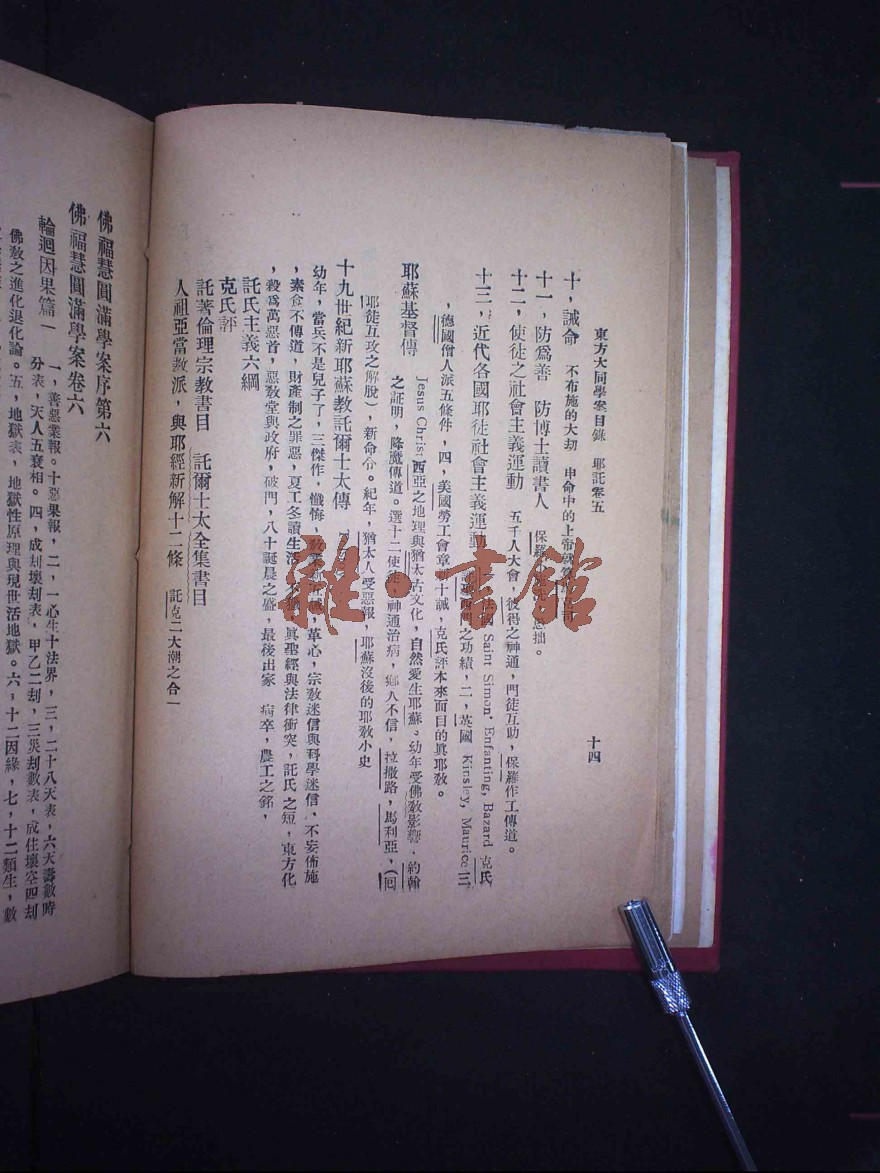 東方大同學案目錄　耶託卷五
十四
十，誡命　不布施的大劫　申命中的上帝
十一，防爲善　防博士讀書人　保羅　愚拙。
十二，使徒之社會主義運動　五千人大會，彼得之神通，門徒互助，保羅作工傳道。
十三，近代各國耶徒社會主義運動　Saint Simon, Enfanting, Bazard 克氏
之功績，二，英國 Kinsley, Maurice 三
，德國僧人派五條件，四，美國勞工會章　十誡，克氏評本來面目的眞耶敎。
耶蘇基督傳　Jesus Christ 西亞之地理與猶太古文化，自然愛生耶蘇。幼年受佛敎影響，約翰
之証明，降魔傳道。選十二使徒　神通治病，鄉人不信，拉撒路，馬利亞，(回
耶徒互攻之解脫)，新命令。紀年，猶太人受惡報，耶蘇沒後的耶敎小史
十九世紀新耶蘇敎託爾士太傳
幼年，當兵不是兒子了，三傑作，懺悔，敎　誡，革心，宗敎迷信與科學迷信，不妄佈施
，素食不傳道，財產制之罪惡，夏工冬讀生活　眞聖經與法律衝突，託氏之短，東方化
，殺爲萬惡首，惡敎堂與政府，破門，八十誕晨之盛，最後出家　病卒，農工之銘，
託氏主義六綱
克氏評
託著倫理宗敎書目　託爾士太全集書目
人祖亞當敎派，與耶經新解十二條　託克二大潮之合一
佛福慧圓滿學案序第六
佛福慧圓滿學案卷六
輪迴因果篇一　一，善惡業報。十惡果報，二，一心生十法界，三，二十八天表，六天壽數時
分表，天人五衰相。四，成刧壞刧表，甲乙二刧，三災刧數表，成住壞空四刧
佛敎之進化退化論。五，地獄表，地獄性原理與現世活地獄。六，十二因緣，七，十二類生，數
雜·書館